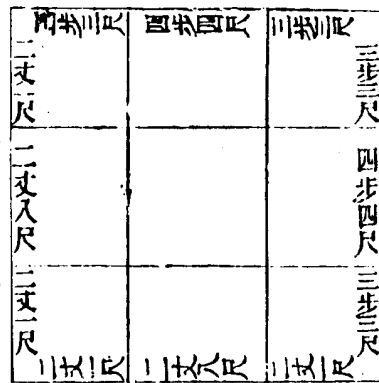 三步三尺
四步四尺
三步三尺
三步三尺
四步四尺
三步三尺
二丈一尺
二丈八尺
二丈一尺
二丈一尺
二丈八尺
二丈一尺